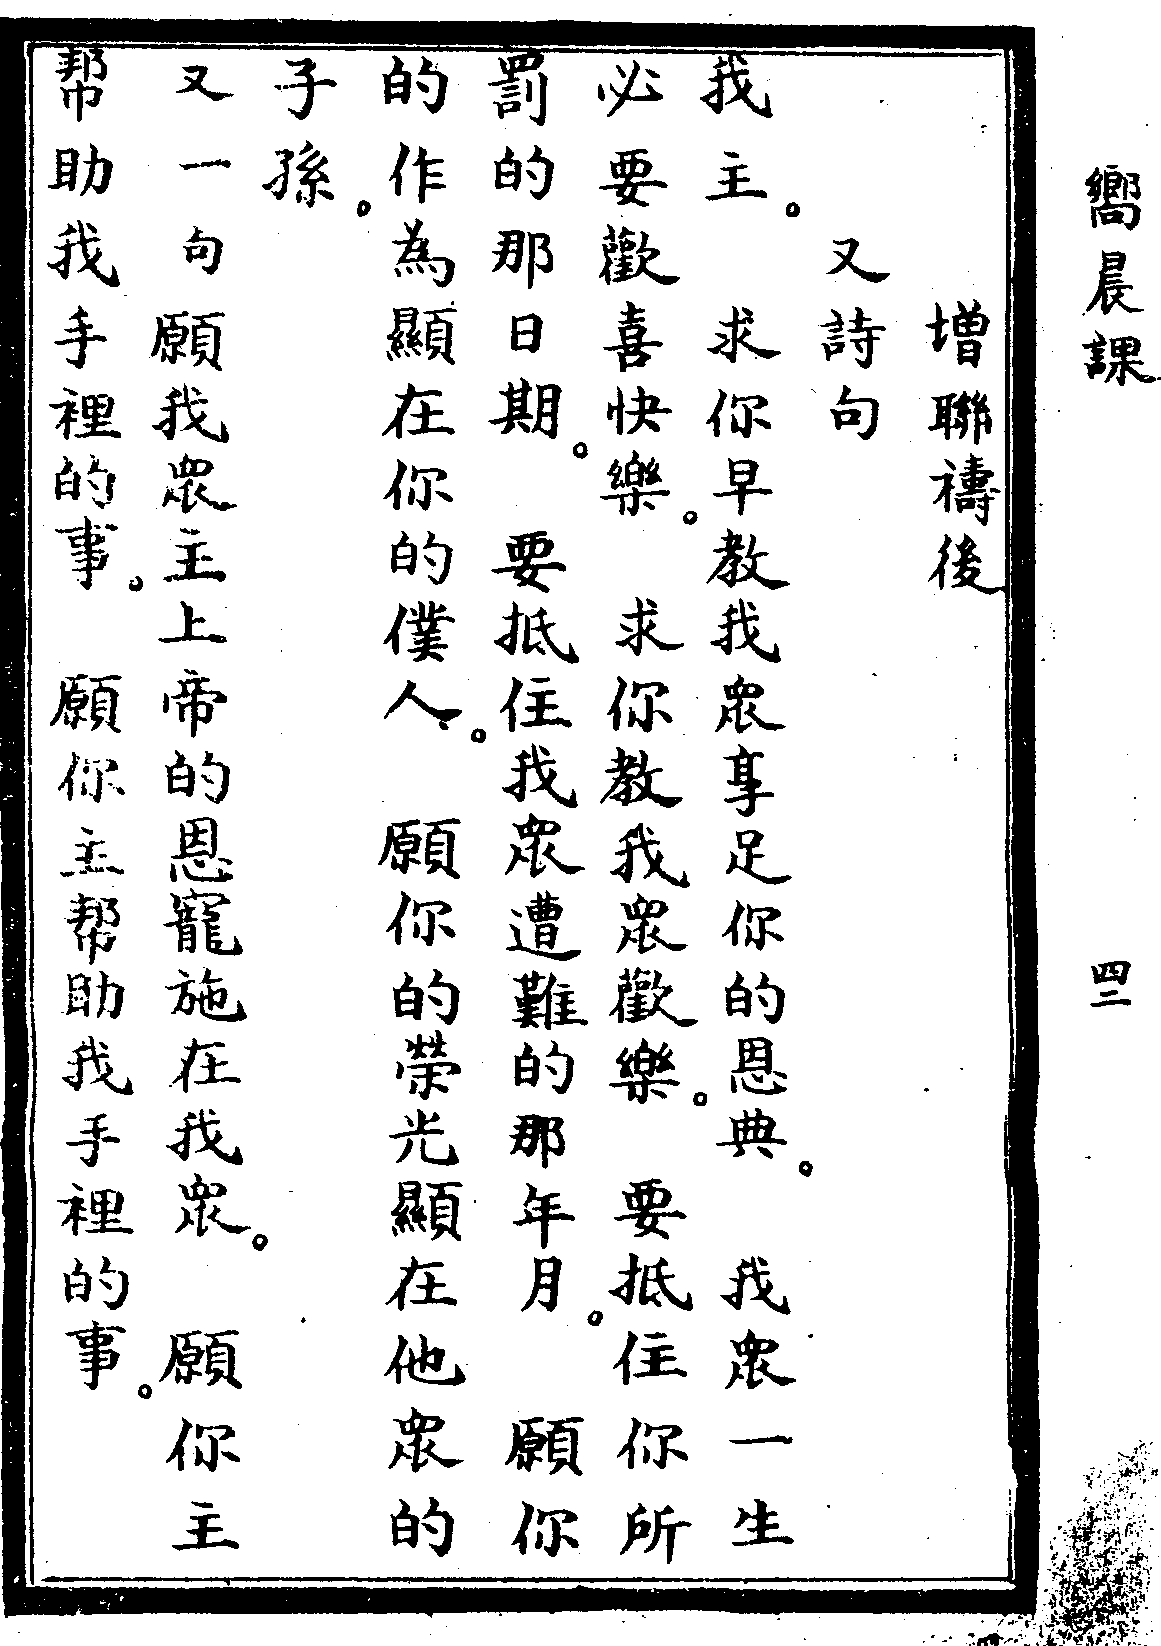 嚮晨課
四二
增聯禱後
又詩句
我主。求你早教我眾享足你的恩典。我眾一生
必要歡喜快樂。求你教我眾歡樂。要抵住你所
罰的那日期。要抵住我眾遭難的那年月。願你
的作為顯在你的僕人。願你的榮光顯在他眾的
子孫。
又一句願我眾主上帝的恩寵施在我眾。願你主
幇助我手裡的事。願你主幇助我手裡的事。